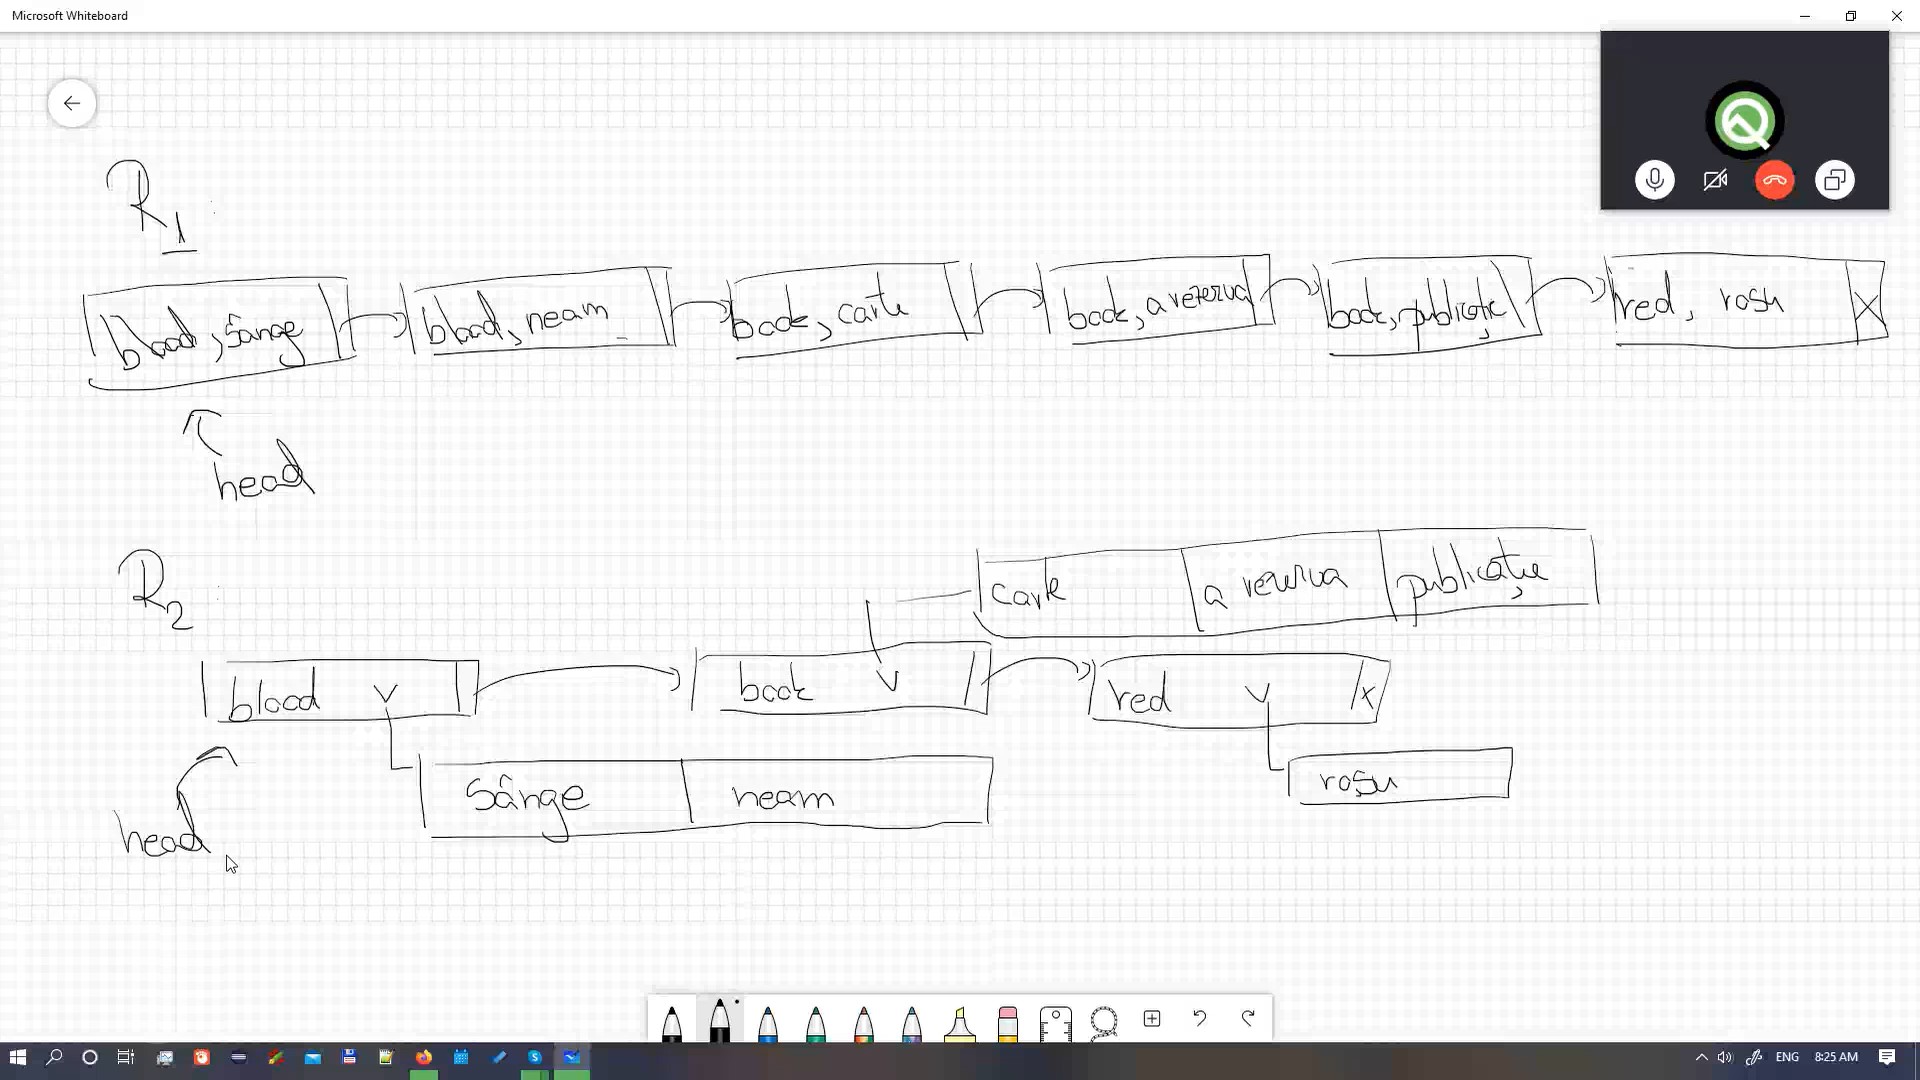 Microsoft Whiteboard
R1
blood, sânge
blood, neam
book, carte
book, a rezerva
book, publicație
red, roșu
X
head
R2
carte
a rezerva
publicație
blood v
book v
red v
X
sânge
neam
roșu
head
ENG
8:25 AM